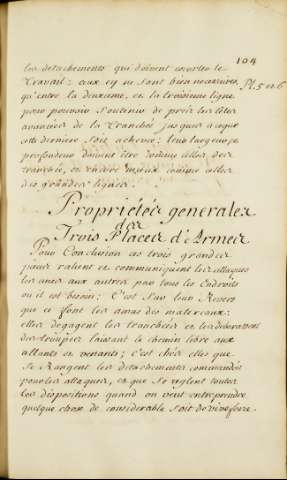 104
les detachements qui doivent escorter le
travail: ceux cy ne sont bien necessaires
Pl. 5 et 6
qu'entre la deuxieme, et la troisieme ligne
pour pouvoir soutenir de près les têtes
avancées de la tranchée jusques a ceque
cette derniere soit achevée; leur largeur, et
profondeur doivent être comme celles des
tranchée, ou encore mieux comme celles
des grandes lignes.
Proprietées generales
des
Trois Places d'Armes
Pour Conclusion ces trois grandes
places lient et communiquent les attaques
les unes aux autres par tous les Endroits
ou il est besoin; C'est sur leur Revers
que se font les amas des matereaux:
elles dégagent les tranchées et les debarassent
des troupes laissant le chemin libre aux
allants et venants; c'est chés elles que
se Rangent les detachements commandés
pour les attaques, et que se reglent toutes
les dispositions quand on veut entreprendre
quelque chose de considerable soit de vive force.